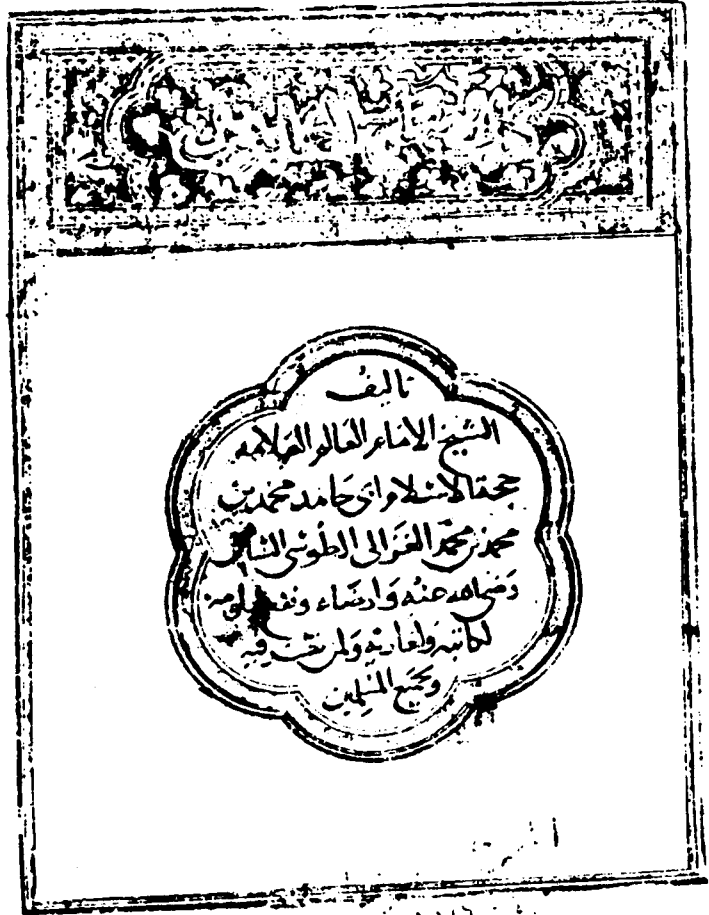 كتاب
تاليف
الشيخ الامام العالم العلامه
حجة الاسلام ابى حامد محمد بن
محمد بن محمد الغزالى الطوسى الشافعى
رضى الله عنه وارضاه ونفع بعلومه
لكاتبه ولقارئه ولمن نظر فيه
ولجميع المسلمين